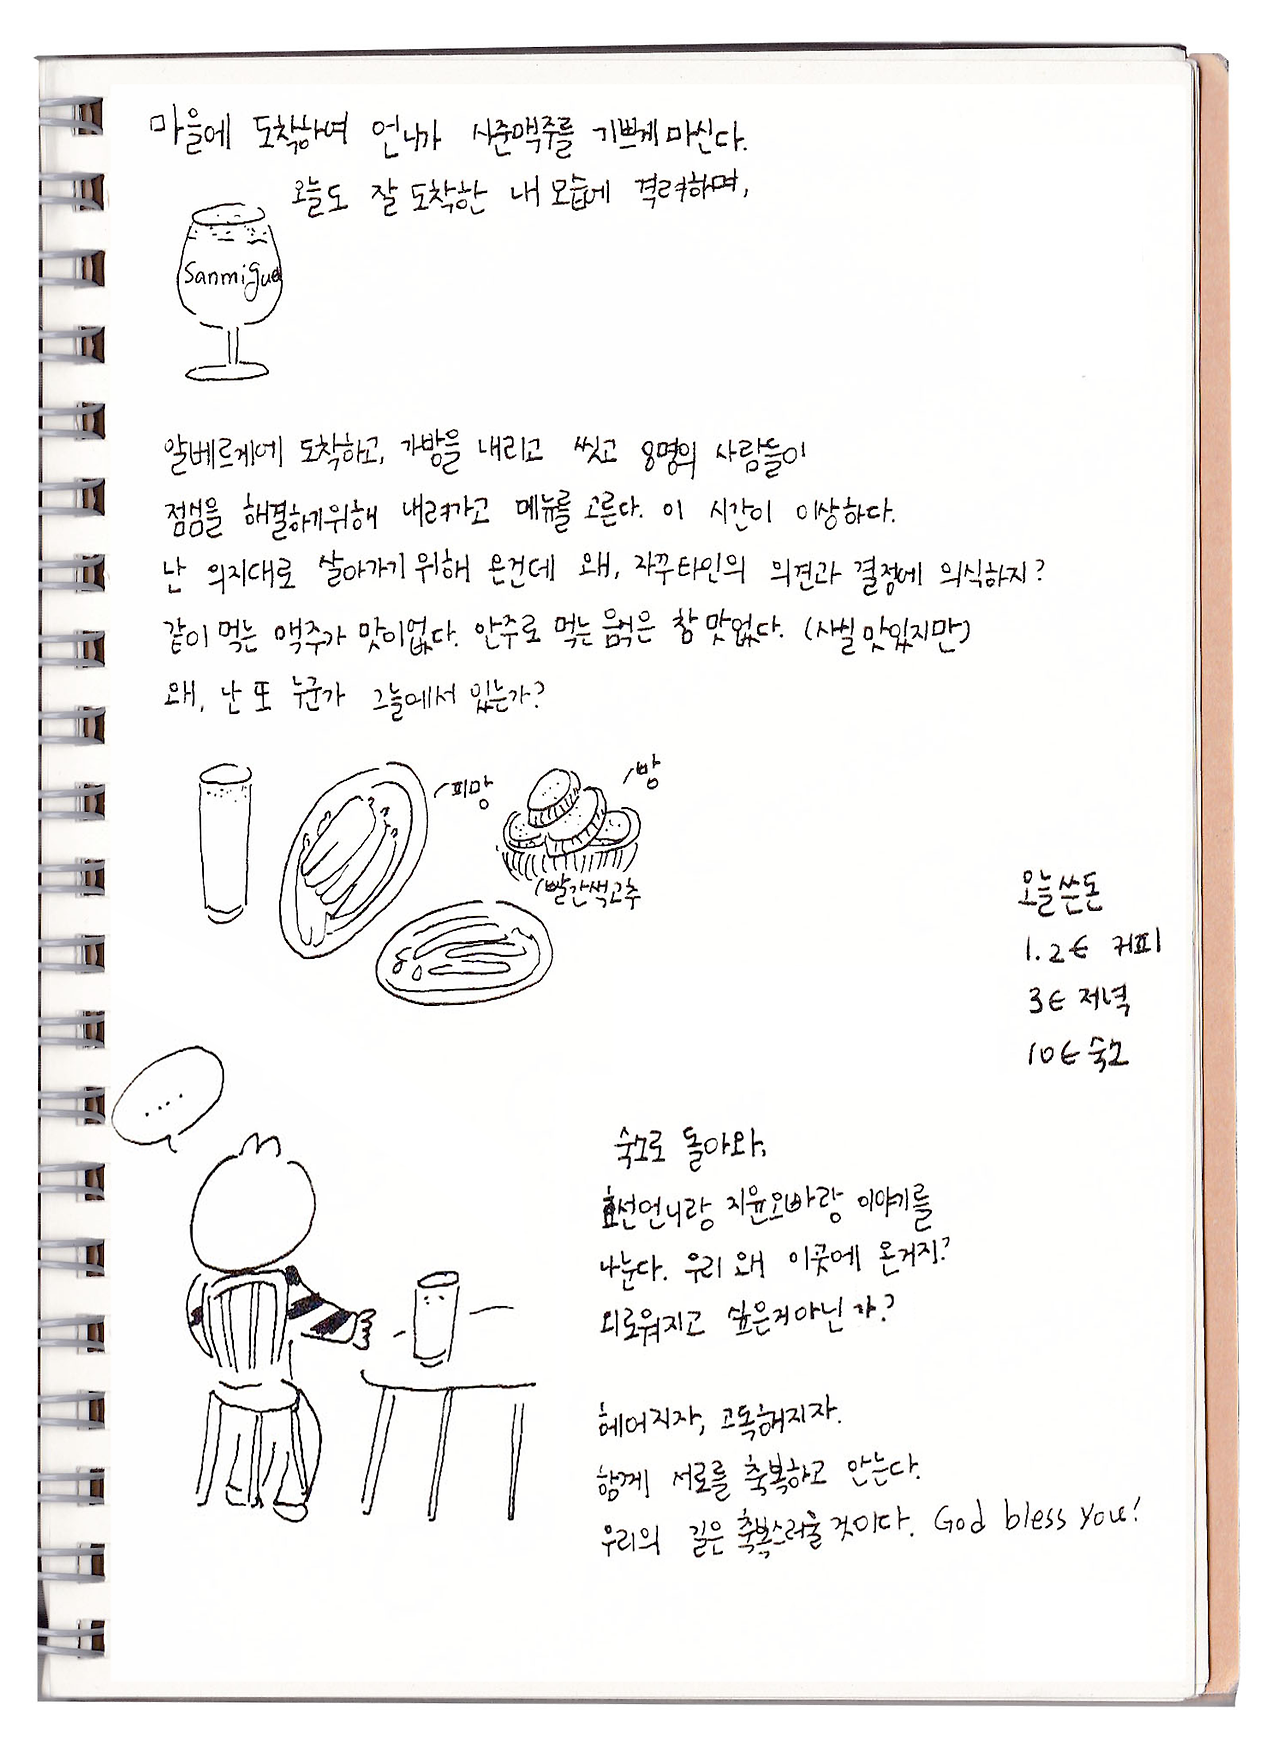 마을에 도착하여 언니가 사준맥주를 기쁘게 마신다.
오늘도 잘 도착한 내 모습에 격려하며,
Sanmiguel
알베르게에 도착하고, 가방을 내리고 씻고 8명의 사람들이
점심을 해결하기위해 내려가고 메뉴를 고른다. 이 시간이 이상하다.
난 의지대로 살아가기 위해 온건데 왜, 자꾸타인의 의견과 결정에 의식하지?
같이 먹는 맥주가 맛이없다. 안주로 먹는 음식은 참 맛없다. (사실 맛있지만)
왜, 난 또 누군가 그늘에서 있는가?
피망
빵
빨간색고추
오늘 쓴돈
1.2€ 커피
3€ 저녁
10€ 숙소
....
숙소로 돌아와,
효선언니랑 지윤오빠랑 이야기를
나눈다. 우리 왜 이곳에 온거지?
외로워지고 싶은거아닌가?
헤어지자, 고독해지자.
함께 서로를 축복하고 안는다.
우리의 길은 축복스러울 것이다. God bless you!